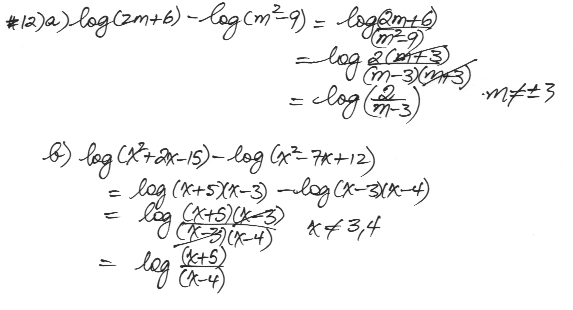 #12)a) log(2m+6) - log(m²-9) = log (2m+6)/(m²-9)
= log 2(m+3)/(m-3)(m+3)
= log (2/m-3) · m≠±3
b) log(x²+2x-15) - log(x²-7x+12)
= log(x+5)(x-3) - log(x-3)(x-4)
= log (x+5)(x-3)/(x-3)(x-4) x≠3,4
= log (x+5)/(x-4)